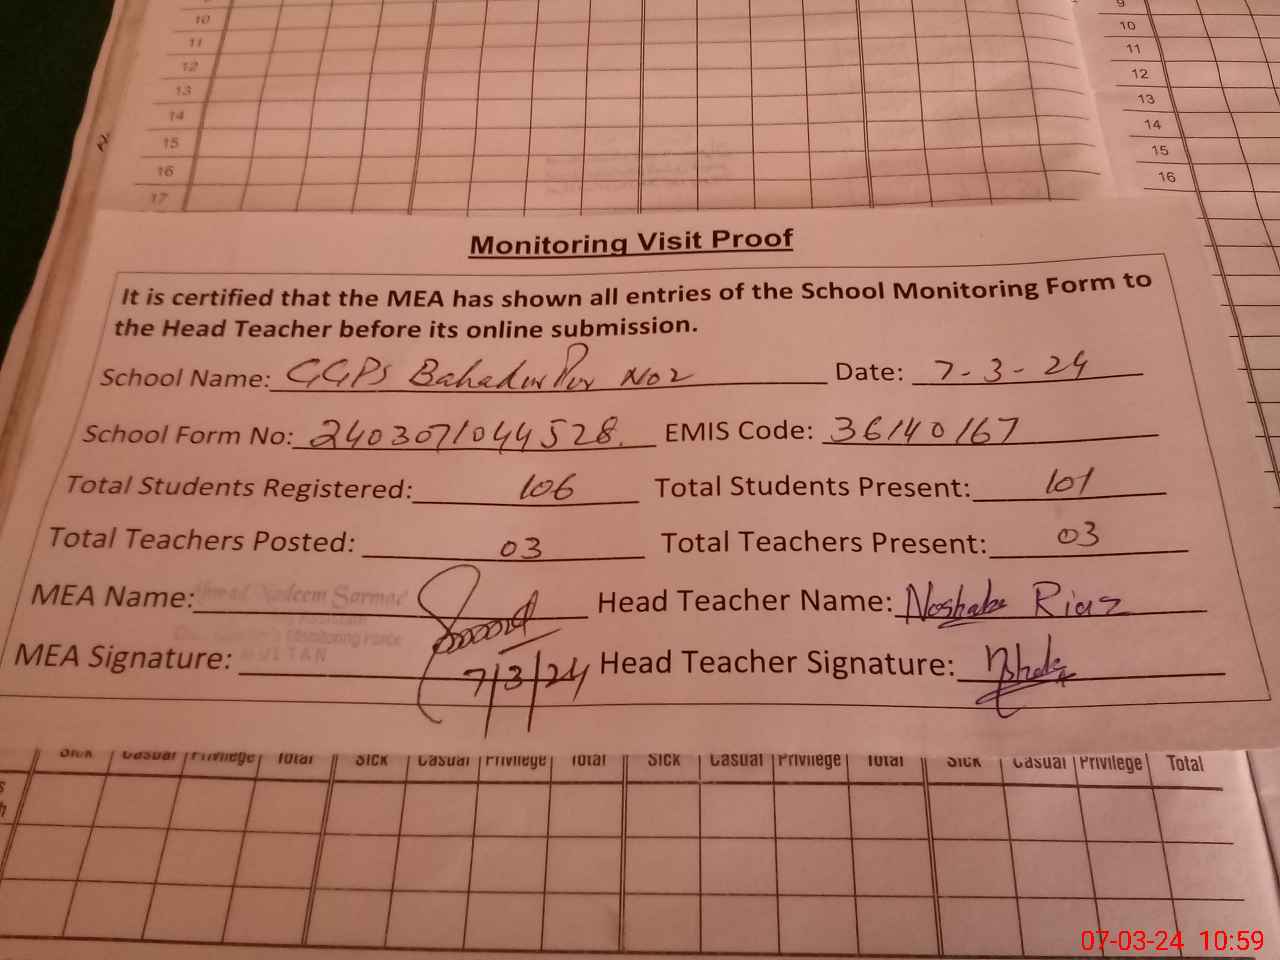 10
11
12
13
14
15
16
17
9
10
11
12
13
14
15
16
Monitoring Visit Proof
It is certified that the MEA has shown all entries of the School Monitoring Form to
the Head Teacher before its online submission.
School Name: GGPS Bahadur Pur No 2 Date: 7-3-24
School Form No: 2403071044528. EMIS Code: 36140167
Total Students Registered: 106 Total Students Present: 101
Total Teachers Posted: 03 Total Teachers Present: 03
MEA Name: Ahmad Nadeem Sarmad Head Teacher Name: Noshaba Riaz
Monitoring Force
MULTAN
MEA Signature: 7/3/24 Head Teacher Signature:
Sick Casual Privilege Total Sick Casual Privilege Total Sick Casual Privilege Total Sick Casual Privilege Total
07-03-24 10:59